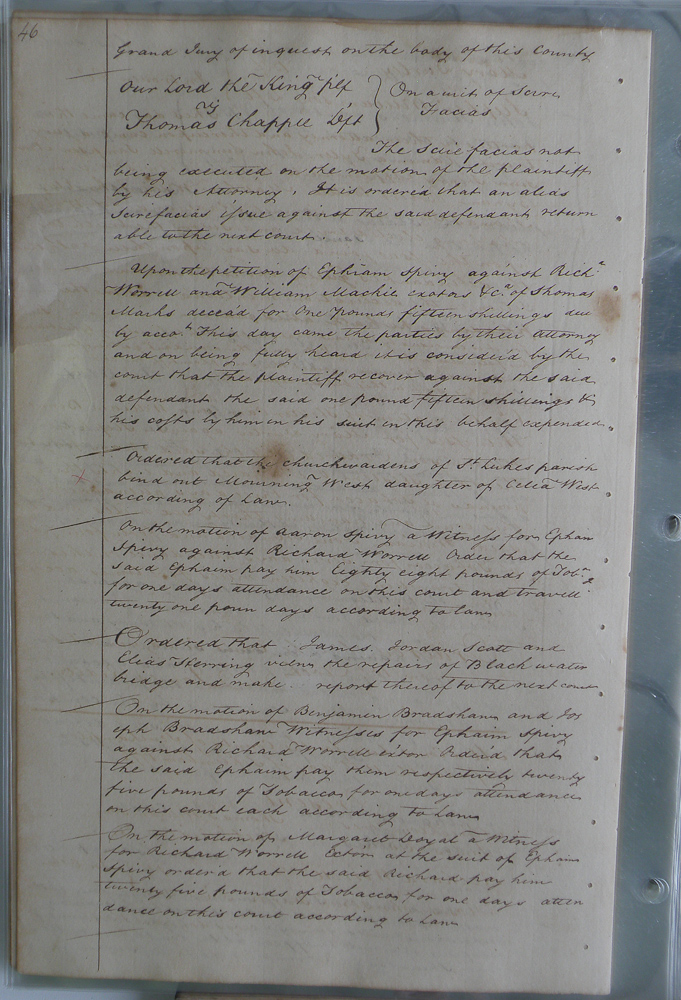 46
Grand Jury of inquest on the body of this County
Our Lord the King plf
vs
Thomas Chappel Deft
On a writ of Scire
Facias
The Scire facias not
being executed on the motion of the plaintiff
by his Attorney, It is ordered that an alias
Scire facias issue against the said defendant return
able to the next court.
Upon the petition of Ephriam Spivy against Richd
Worrell and William Mackie exators &ca of Thomas
Marks decead for One pounds fifteen shillings due
by accot This day came the parties by their attorney
and on being fully heard it is consider'd by the
court that the plaintiff recover against the said
defendant the said one pound fifteen shillings &
his costs by him in his suit in this behalf expended
Ordered that the churchwardens of St Lukes parish
bind out Mourning West daughter of Celia West
according of Law.
On the motion of Aaron Spivy a Witness for Epham
Spivy against Richard Worrell Order that the
said Ephaim pay him Eighty eight pounds of Tobo
for one days attendance on this court and travell
twenty one poun days according to law
Ordered that James Jordan Scott and
Elias Herring view the repairs of Black water
bridge and make report thereof to the next court
On the motion of Benjamin Bradshaw and Jos
eph Bradshaw Witnesses for Ephaim Spivy
against Richard Worrell extor Order'd that
the said Ephaim pay them respectively twenty
five pounds of Tobacco for one days attendance
on this court each according to Law
On the motion of Margaret Doyal a Witness
for Richard Worrell Ector at the suit of Ephaim
Spivy order'd that the said Richard pay him
twenty five pounds of Tobacco for one days atten
dance on this court according to Law